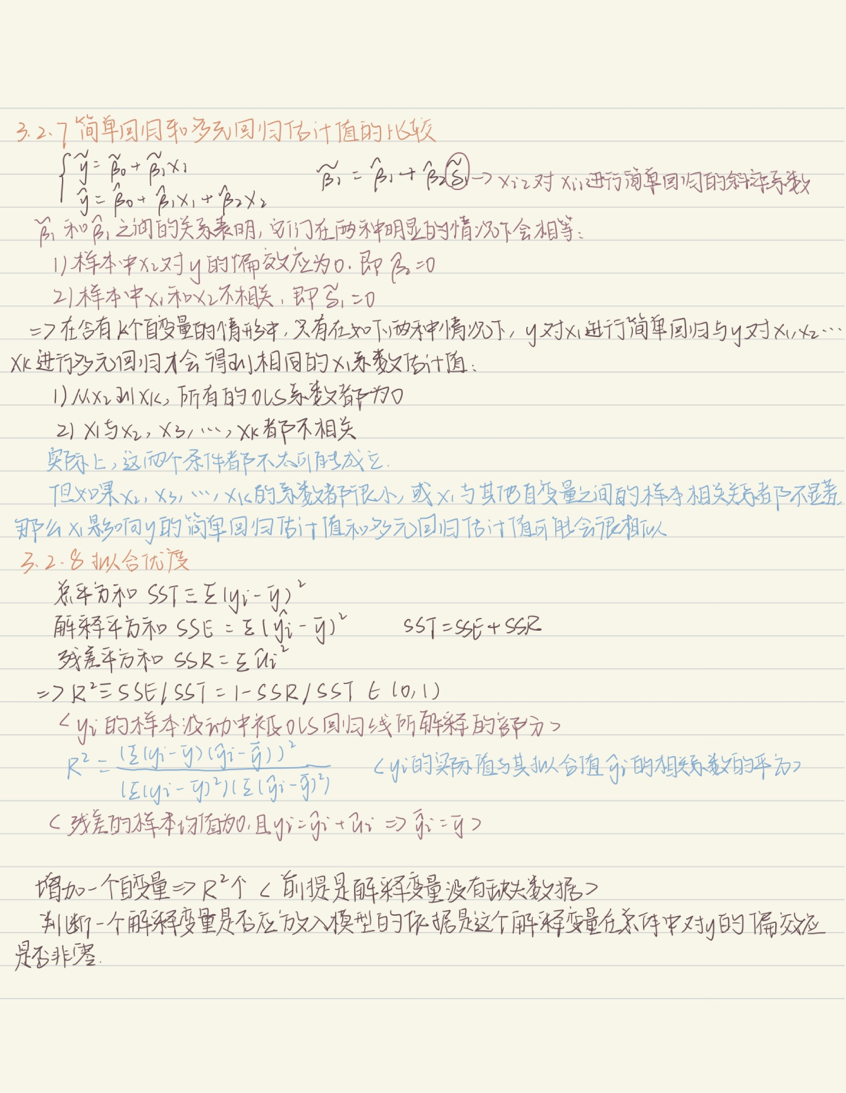 3.2.7 简单回归和多元回归估计值的比较
{ ỹ = β̃0 + β̃1x1
ŷ = β̂0 + β̂1x1 + β̂2x2
β̃1 = β̂1 + β̂2δ̃1 → xi2对xi1进行简单回归的斜率系数
β̃1和β̂1之间的关系表明,它们在两种明显的情况下会相等:
1)样本中x2对y的偏效应为0.即β̂2=0
2)样本中x1和x2不相关,即δ̃1=0
=>在含有k个自变量的情形中,只有在如下两种情况下,y对x1进行简单回归与y对x1,x2…
xk进行多元回归才会得到相同的x1系数估计值:
1)从x2到xk,所有的OLS系数都为0
2)x1与x2,x3,…,xk都不相关
实际上,这两个条件都不太可能成立.
但如果x2,x3,…,xk的系数都很小,或x1与其他自变量之间的样本相关关系都不显著,
那么x1影响y的简单回归估计值和多元回归估计值可能会很相似
3.2.8 拟合优度
总平方和 SST≡Σ(yi-ȳ)²
解释平方和 SSE=Σ(ŷi-ȳ)² SST=SSE+SSR
残差平方和 SSR=Σûi²
=>R²≡SSE/SST=1-SSR/SST∈(0,1)
<yi的样本波动中被OLS回归线所解释的部分>
R² = (Σ(yi-ȳ)(ŷi-ȳ))² / (Σ(yi-ȳ)²)(Σ(ŷi-ȳ)²) <yi的实际值与其拟合值ŷi的相关系数的平方>
<残差的样本均值为0,且yi=ŷi+ûi => ŷi=ȳ>
增加一个自变量=>R²个<前提是解释变量没有缺失数据>
判断一个解释变量是否应放入模型的依据是这个解释变量在总体中对y的偏效应
是否非零.